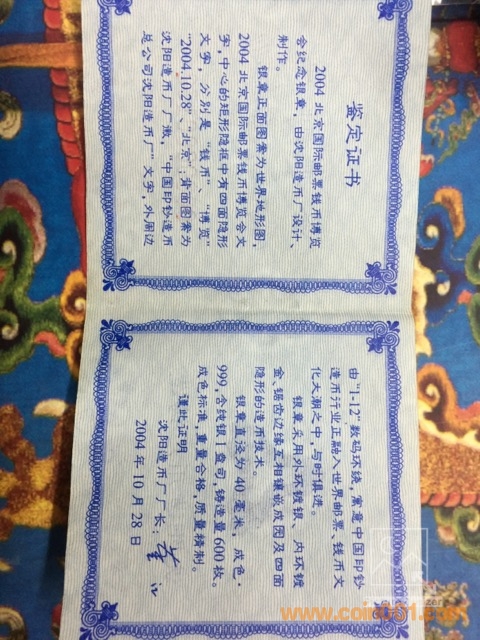 鉴定证书
2004 北京国际邮票钱币博览
会纪念银章，由沈阳造币厂设计、
制作。
银章正面图案为世界地形图，
2004 北京国际邮票钱币博览会文
字，中心的矩形隐框中有四面隐形
文字，分别是“钱币”、“博览”
“2004.10.28”、“北京”；背面图案为
沈阳造币厂厂徽，“中国印钞造币
总公司沈阳造币厂”文字，外周边
由“1-12”数码环绕，寓意中国印钞
造币行业正融入世界邮票、钱币文
化大潮之中，与时俱进。
银章采用外环镀银、内环镀
金、锯齿边缘互相镶嵌成圆及四面
隐形的造币技术。
银章直径为 40 毫米，成色·
999，含纯银 1 盎司，铸造量 600 枚。
成色标准，重量合格，质量精制。
谨此证明
沈阳造币厂厂长：
2004 年 10 月 28 日